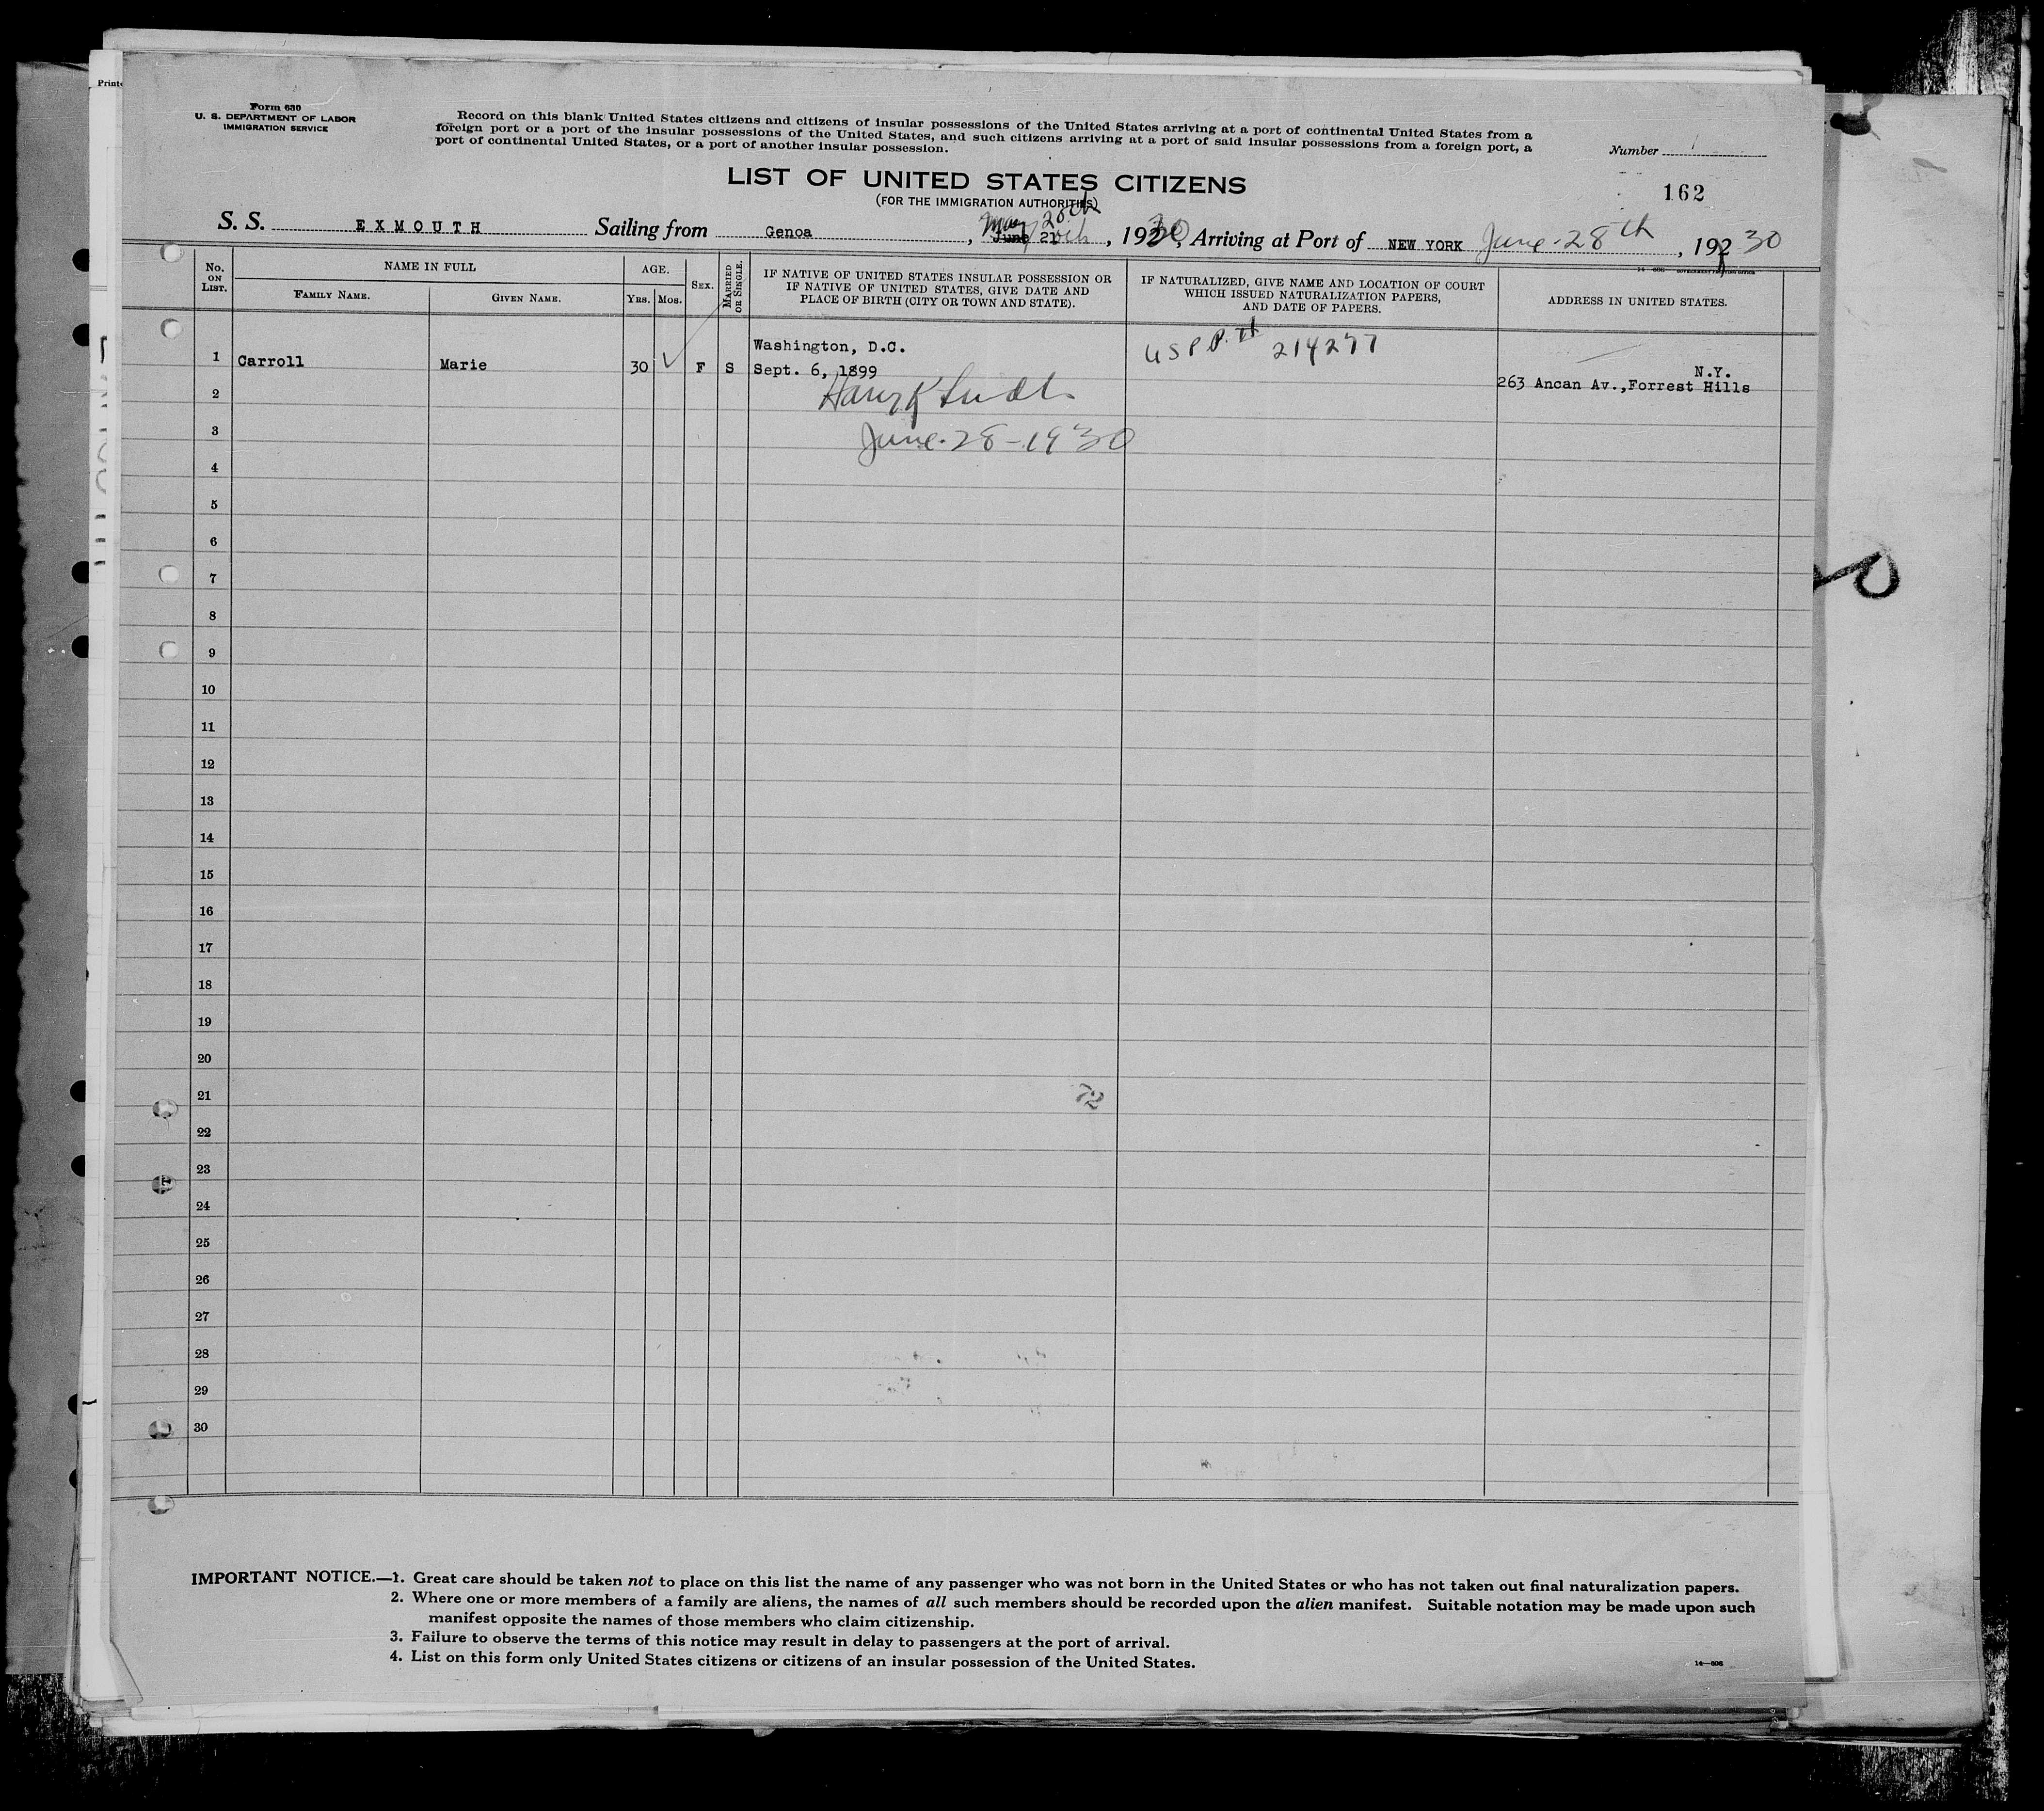 Printe
Form 630
U. S. DEPARTMENT OF LABOR
IMMIGRATION SERVICE
Record on this blank United States citizens and citizens of insular possessions of the United States arriving at a port of continental United States from a
foreign port or a port of the insular possessions of the United States, and such citizens arriving at a port of said insular possessions from a foreign port, a
port of continental United States, or a port of another insular possession.
Number 1
162
LIST OF UNITED STATES CITIZENS
(FOR THE IMMIGRATION AUTHORITIES)
May 28th
S. S. EXMOUTH Sailing from Genoa, June 21, 1930, Arriving at Port of NEW YORK June-28th, 192 30
No. ON LIST.
NAME IN FULL
FAMILY NAME.
GIVEN NAME.
AGE.
YRS.
MOS.
SEX.
MARRIED OR SINGLE.
IF NATIVE OF UNITED STATES INSULAR POSSESSION OR
IF NATIVE OF UNITED STATES, GIVE DATE AND
PLACE OF BIRTH (CITY OR TOWN AND STATE).
IF NATURALIZED, GIVE NAME AND LOCATION OF COURT
WHICH ISSUED NATURALIZATION PAPERS,
AND DATE OF PAPERS.
ADDRESS IN UNITED STATES.
Washington, D.C.
1 Carroll Marie 30 F S Sept. 6, 1899 USPP. 214277
N.Y.
263 Ancan Av.,Forrest Hills
2
June-28-1930
3
4
5
6
7
8
9
10
11
12
13
14
15
16
17
18
19
20
21
72
22
23
24
25
26
27
28
29
30
IMPORTANT NOTICE.—1. Great care should be taken not to place on this list the name of any passenger who was not born in the United States or who has not taken out final naturalization papers.
2. Where one or more members of a family are aliens, the names of all such members should be recorded upon the alien manifest. Suitable notation may be made upon such
manifest opposite the names of those members who claim citizenship.
3. Failure to observe the terms of this notice may result in delay to passengers at the port of arrival.
4. List on this form only United States citizens or citizens of an insular possession of the United States.